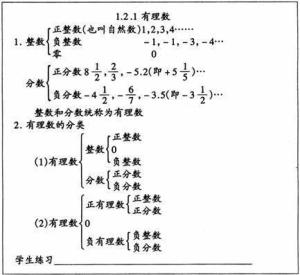 1.2.1 有理数
1. 整数 { 正整数(也叫自然数)1,2,3,4……
负整数 -1,-1,-3,-4…
零 0
分数 { 正分数 8 1/2, 2/3, -5.2(即+5 1/5)…
负分数 -4 1/2, -6/7, -3.5(即-3 1/2)…
整数和分数统称为有理数
2. 有理数的分类
(1)有理数 { 整数 { 正整数
0
负整数
分数 { 正分数
负分数
(2)有理数 { 正有理数 { 正整数
正分数
0
负有理数 { 负整数
负分数
学生练习